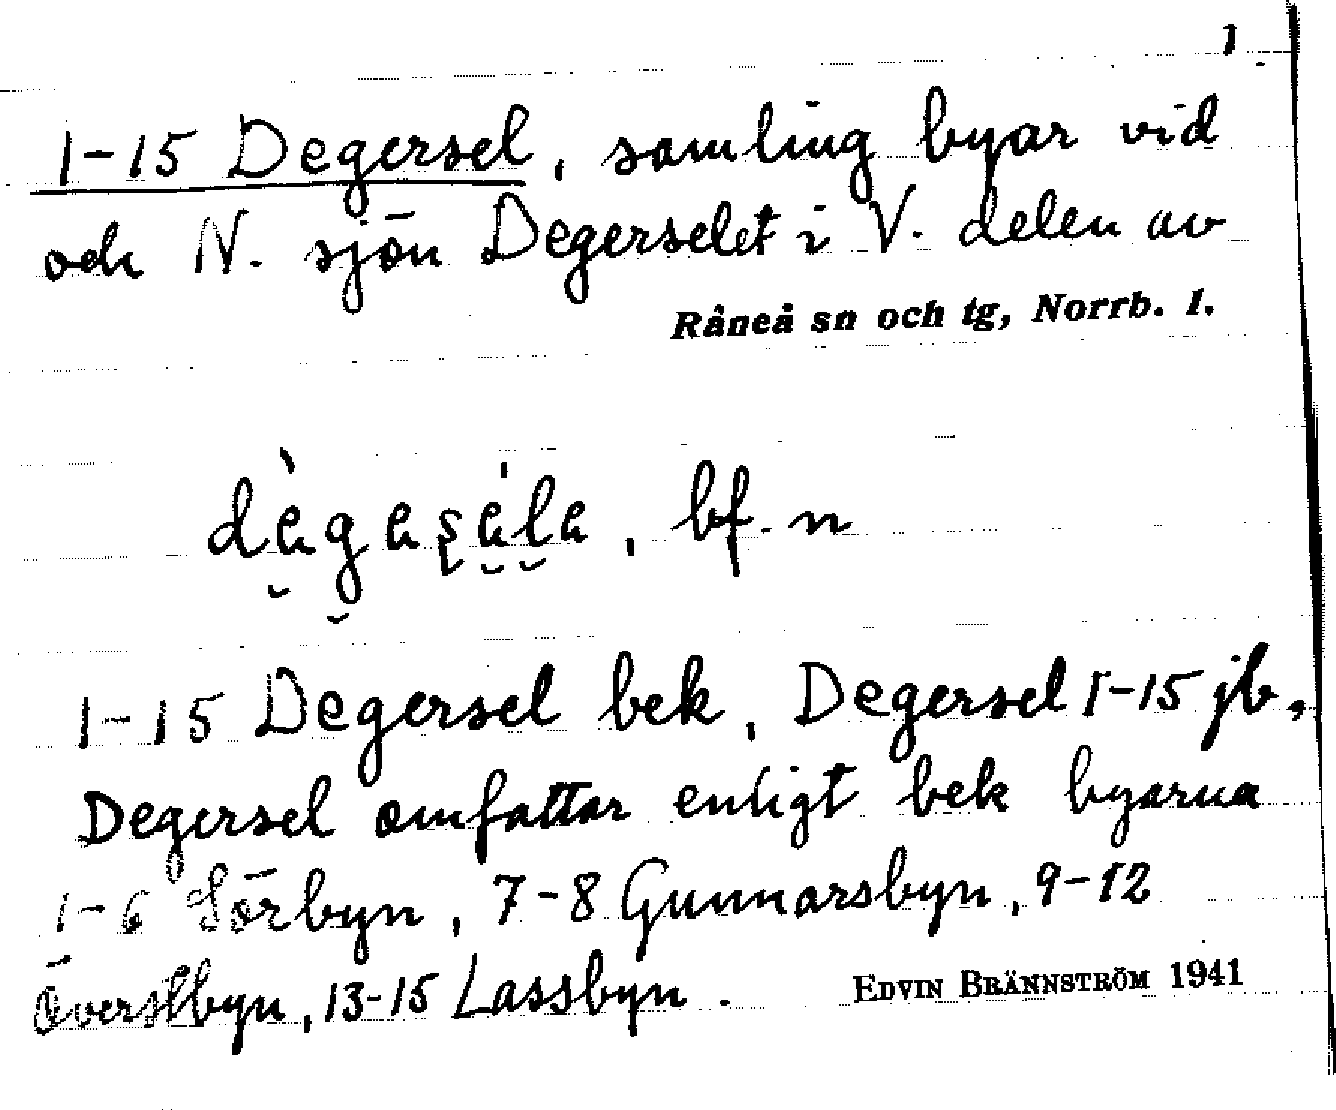 1
1-15 Degersel, samling byar vid
och N. sjön Degerselet i V. delen av
Råneå sn och tg, Norrb. l.
bf. n
1-15 Degersel bek, Degersel 1-15 jb,
Degersel omfattar enligt bek byarna
1-6 Sörbyn, 7-8 Gunnarsbyn, 9-12
Överstbyn, 13-15 Lassbyn.
EDVIN BRÄNNSTRÖM 1941